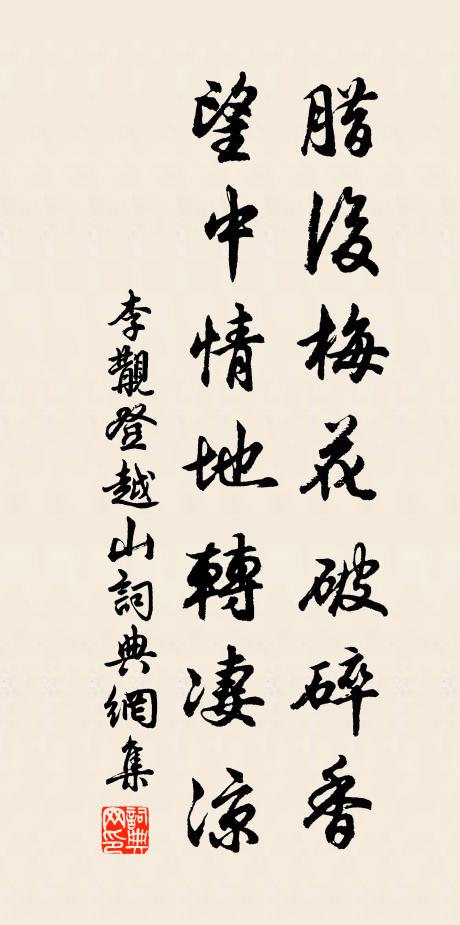 腊後梅花破碎香
望中情地轉凄涼
李覯登越山詞典網集
詞典网印